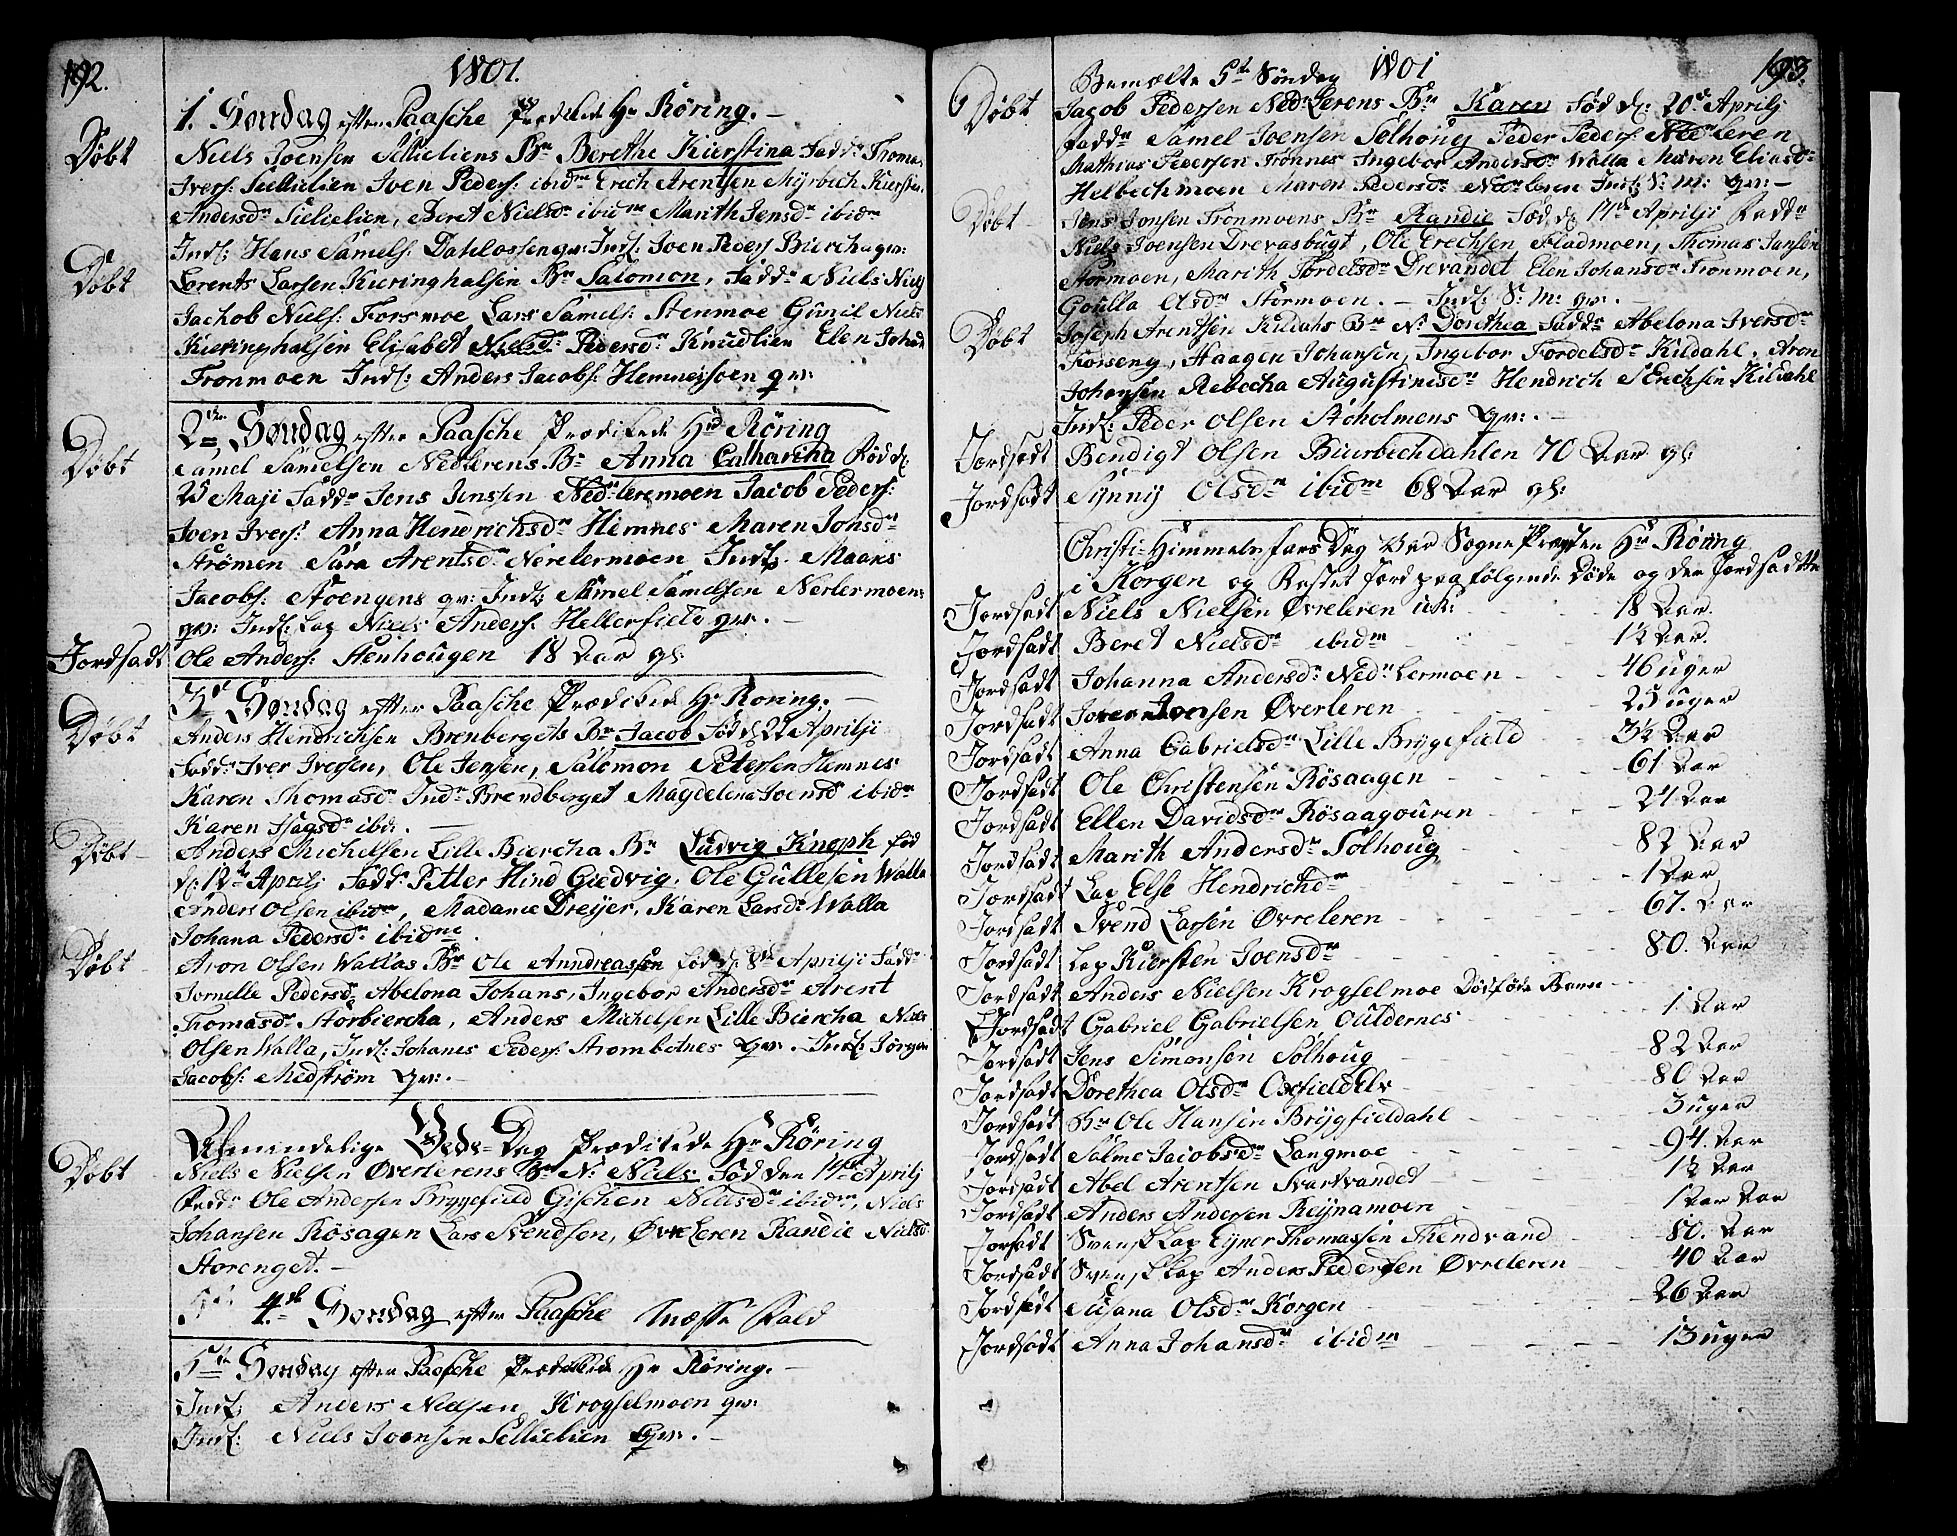 192.
1801.
1. Søndag efter Paasche Prædikede Hr Röring.
Døbt
Niels Joensen Sellieliens Bn Berethe Kierstina Fadd: Thomas
Ivers: Sellielien Joen Peders: ibidm Erich Arentsen Myrbech Kiersten
Andersdr Sielielien, Beret Nielsdr ibidm Marith Jensdr ibidm
Indl: Hans Samels: Dahlossen qv: Indl: Joen Peders Biercha qv:
Døbt
Lorents Larsen Kieringhalsen Bn Salomon, Faddr Niels Niels
Jachob Niels: Forsmoe Lars Samels: Stenmoe Gunil Niels
Kieringhalsen Elisabet Nielsdr Pedersdr Knudlien Elen Johan
Fronmoen Indl: Anders Jacobs: Hemnesoen qv:
2den Søndag efter Paasche Prædikede Hr Röring
Døbt
Samel Samelsen Nedlerens Bn Anna Catharina Fød d:
25 Maji Faddr Jens Jensen Nedleremoen Jacob Peders:
Joen Ivers: Anna Hendrichsdr Hemnes Maren Jonsdr
Strömen Sara Arentsdr Nerelermoen Indl: Maans
Jacobs: Stoengens qv: Indl: Samel Samelsen Nerlermoens
qv: Indl: Lap Niels Anders: Hellerfield qv.
Jordsadt
Ole Anders: Stenhougen 18 Aar gl:
3de Søndag efter Paasche Prædikede Hr Roring.
Døbt
Anders Hendrichsen Brenbergets Bn Jacob Fød d 22 Aprilji
Fadd: Iver Iversen, Ole Jensen, Salomon Petersen Hemnes
Karen Thomasdr Indr Brendberget Magdelena Joensd ibidm
Karen Hagsdr ibd:
Døbt
Anders Michelsen Lille Biercha Bn Ludvig Knoph fød
d: 12te Aprilj Fadd: Petter Hind Giedvig, Ole Gullesen Walla
Anders Olsen ibidm, Madame Dreijer, Karen Larsdr Walla
Johana Pedersdr ibidme
Døbt
Aron Olsen Wallas Bn Ole Anndreassen fød d: 8de Aprilji Fadd
Tornelle Pedersdr Abelona Johans, Ingebor Andersdr Arent
Thomasdr Storbiercha, Anders Michelsen Lille Biercha Niels
Olsen Walla, Indl: Johanes Peders: Strombotnes qv. Indl: Jörgen
Jacobs: Medström qv:
Almindelige Bede-Dag Prædikede Hr Röring
Døbt
Niels Nielsen Øverlerens Bn N: Niels Fød den 14de Aprilj
Fadd: Ole Andersen Bryggefield Gischen Nielsdr ibidm, Niels
Johansen Rösagen Lars Svendsen, Øvreleren Randie Nielsd
Storenget.
4de Søndag efter Paasche Messe Fald
5te Søndag efter Paasche Prædikede Hr Röring.
Indl: Anders Nielsen Krogselmoen qv:
Indl: Niels Joensen Sellielien qv:
1801
193.
Bemælte 5te Söndag
Døbt
Jacob Pedersen Ned:Lerens Bn Karen Fød d: 20de Aprilj
Faddr Samel Joensen Solhoug Peder Peders: Nederleren
Mathias Pedersen Fronnes Ingebor Andersdr Walla Maren Eliasdr
Helbechmoen Maren Pedersdr Nederleren Indl: S: M: qv:
Døbt
Jens Jonsen Fronmoens Bn Randie Fød d: 17de Aprilji Faddr
Niels Joensen Drevasbugt, Ole Erechsen Fladmoen, Thomas Jansen
Stormoen, Marith Tordelsdr Drevandet Elen Johansdr Fronmoen,
Goulla Olsdr Stormoen. Indl: S: M: qv.
Døbt
Joseph Arentsen Kildals Bn N: Dorethea Faddr Abelona Iversdr
Korseng, Haagen Johansen, Ingebor Tordelsdr Kildahl. Aron
Johansen Rebecha Augustinusdr Hendrich Erechsen Kildahl
Indl: Peder Olsen Stoholmens qv:
Jordsadt Bendigt Olsen Bierbechdahlen 70 Aar gl:
Jordsadt Synnij Olsdr ibidm 68 Aar gl:
Christi Himmelsfars Dag var Sogne Præsten Hr Röring
i Korgen og Kastet Jord paa følgende Døde og der Jordsadtte
Jordsadt Niels Nielsen Øvreleren 18 Aar.
Jordsadt Beret Nielsdr ibidm 1½ Aar.
Jordsadt Johanna Andersdr Nedrlermoen 46 uger
Jordsadt Joen Iversen Øverleren 25 uger
Jordsadt Anna Gabrielsdr Lille Brygefield 3½ Aar
Jordsadt Ole Christensen Rösaagen 61 Aar
Jordsadt Ellen Davidsdr Rösaagouren 24 Aar
Jordsadt Marith Andersdr Solhoug 82 Aar
Jordsadt Lap Else Hendrichdr 1 Aar
Jordsadt Svend Larsen Øvreleren 67. Aar
Jordsadt Lap Kiersten Joensdr 80. Aar
Jordsadt Anders Nielsen Krogselmoe Dödföde Barn
Jordsadt Gabriel Gabrielsen Ouldernes 1 Aar
Jordsadt Jens Simonsen Solhoug 82 Aar
Jordsadt Dorethea Olsdr Oxfieldelv 80 Aar
Jordsadt Bn Ole Hansen Brygfieldahl 3 uger
Jordsadt Salme Jacobsdr Langmoe 94. Aar
Jordsadt Abel Arentsen Svartvandet 1½ Aar
Jordsadt Anders Andersen Reijnamoen 1 Aar
Jorsadt Svensk Lap Ejner Thomassen Thendvand 80. Aar
Jordsadt Svensk Lap Anders Pedersen Øvreleren 40 Aar
Jordsadt Susana Olsdr Korgen 26 Aar
Jordsadt Anna Johansdr ibidm 13 uger